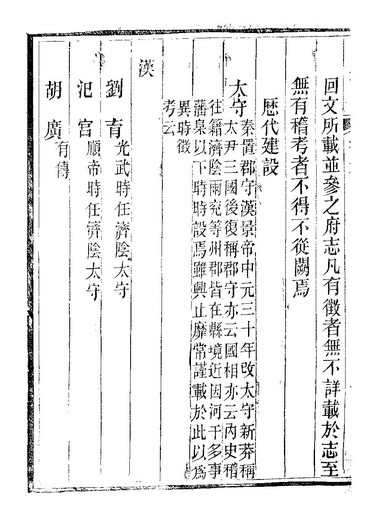 回文所載並參之府志凡有徵者無不詳載於志至
無有稽考者不得不從闕焉
歷代建設
太守
秦置郡守漢景帝中元三十年改太守新莽稱
太尹三國後復稱郡守亦云國相亦云內史稽
往籍濟陰雨兗等州郡皆在縣境近因河干多事
藩臬以下時時設焉雖興止靡常謹載於此以為
異時徵
考云
漢
劉育
光武時任濟陰太守
汜宮
順帝時任濟陰太守
胡廣
有傳